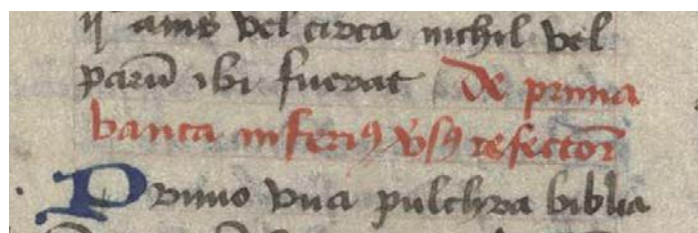 ij annis vel circa nichil vel
parū ibi fuerat De prima
banca inferiꝰ v̾sꝰ refector̄
Primo vna pulchra biblia